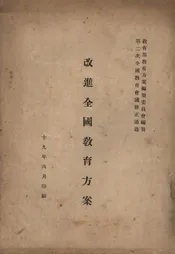 教育部教育方案編製委員會編製
第二次全國教育會議修正通過
改進全國教育方案
十九年六月印